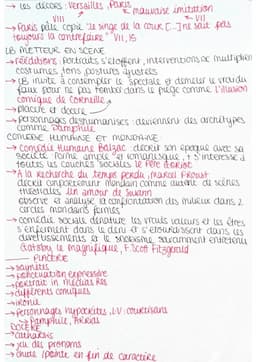 → les décors: Versailles, Paris
VIII
mauvaise imitation
VII
→ Paris pâle copie "le singe de la cour [...] ne sait pas
toujours la contrefaire" VII, 15
LB METTEUR EN SCENE
→ rééditions: portraits s'étoffent, interventions se multiplient
costumes, tons postures ajustés
→ LB invite à contempler le spectacle et démêler le vrai du
faux pour ne pas tomber dans le piège comme l'illusion
comique de Corneille
→ placere et docere
→ personnages déshumanisés: deviennent des archétypes
comme Pamphile
COMEDIE HUMAINE ET MONDAINE
→ Comédie Humaine Balzac: décrit son époque avec sa
société forme ample et romanesque, + s'intéresse à
toutes les couches sociales Le Père Goriot
→ A la recherche du temps perdu, Marcel Proust
décrit concrètement mondain comme autant de scènes
théâtrales, Un amour de Swann
observe et analyse la confrontation des milieux dans 2
cercles mondains fermés
→ comédie sociale dénature les vrais valeurs et les êtres
s'enferment dans le déni et s'étourdissent dans les
divertissements et le snobisme, savamment entretenus
Gatsby le magnifique, F. Scott Fitzgerald
PLACERE
→ saynètes
→ ponctuation expressive
→ portrait in medias res
→ différents comiques
→ ironie
→ personnages hypocrites, LV: courtisans
→ Pamphile, Arrias
DOCERE
→ catharsis
→ jeu des pronoms
→ chute / pointe en fin de caractère